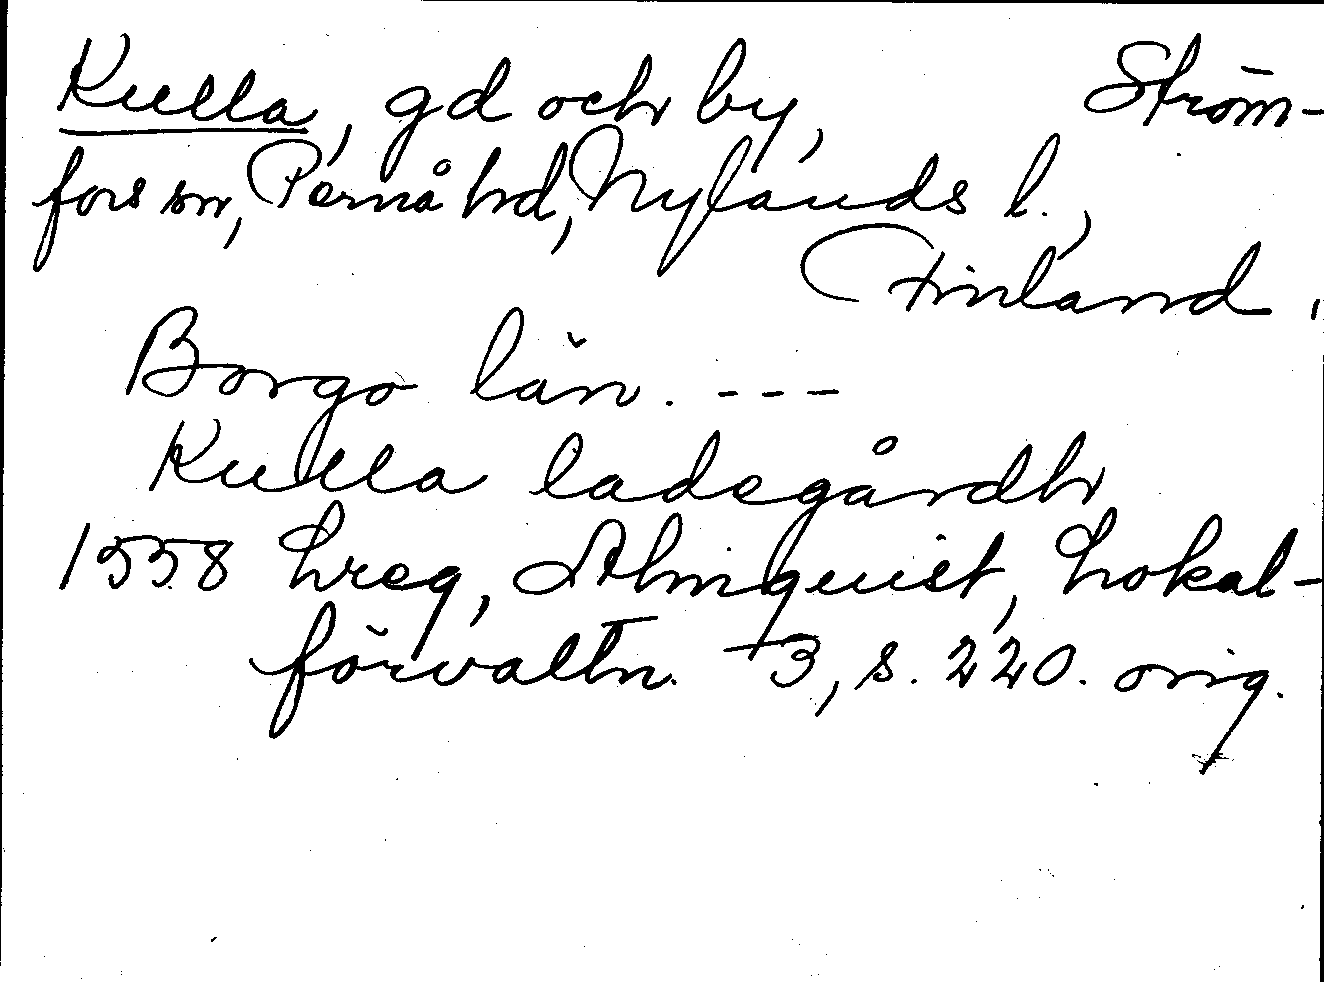 Kulla, gd och by, Ström-
fors sn, Pernå hd, Nylands l.,
Finland.
Borgo län. ---
Kulla ladegårdh
1558 Lreg, Almquist, Lokal-
förvaltn. 3, s. 220. orig.